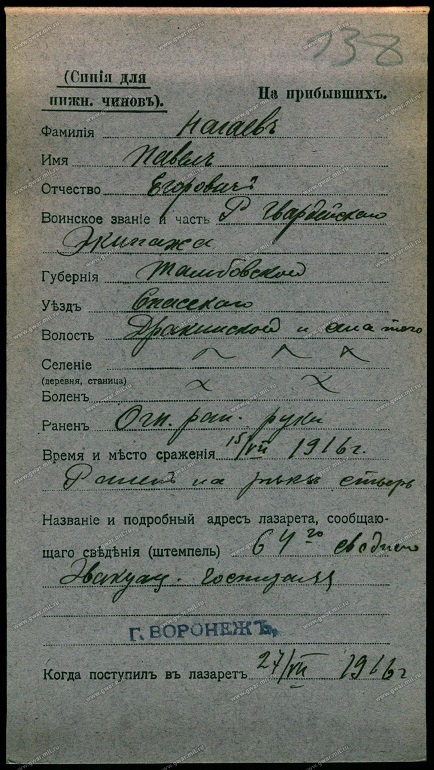 138
(Синія для
нижн. чиновъ).
На прибывшихъ.
Фамилія Нагаевъ
Имя Павелъ
Отчество Егоровичъ
Воинское званіе и часть Р Гвардейскаго
Экипажа
Губернія Тамбовской
Уѣздъ Спасскаго
Волость Дракинской и
Селеніе
(деревня, станица)
Боленъ
Раненъ Огн. ран. руки
Время и мѣсто сраженія 15/VII 1916 г.
на рѣкѣ
Названіе и подробный адресъ лазарета, сообщаю-
щаго свѣдѣнія (штемпель) 64го сводного
Эвакуац. госпиталя
Г. ВОРОНЕЖЪ,
Когда поступилъ въ лазаретъ 27/VII 1916 г